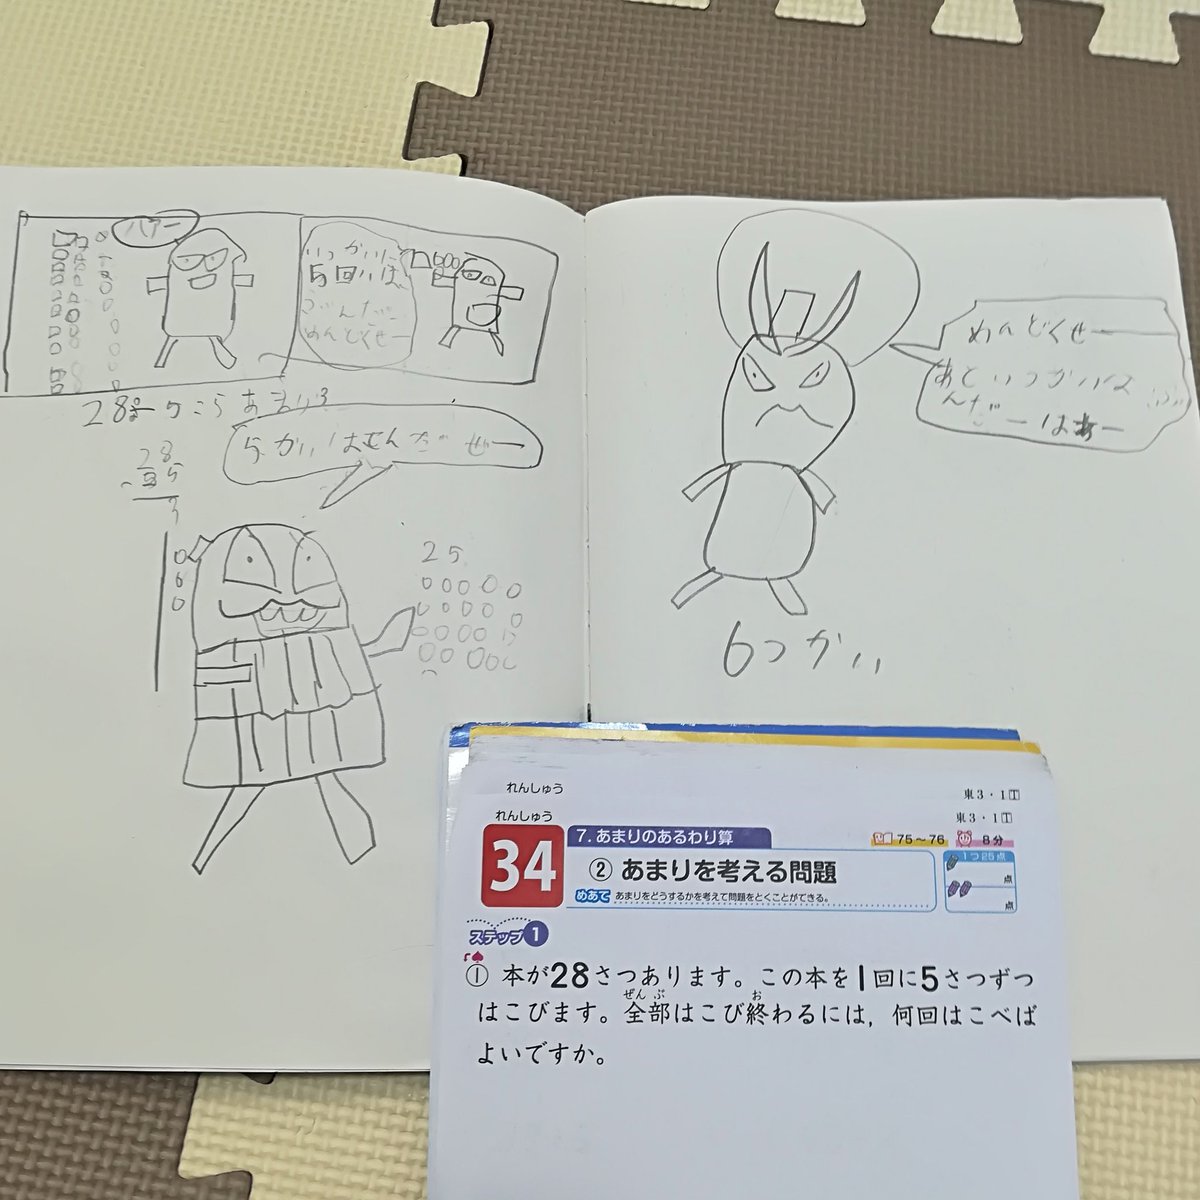 ハァー
いっかいに
5回いは
めんどくせー
28
あまり3
5かいはこんだぜー
28
25
3
25
めんどくせー
あといっかいは
んだーはぁー
6つかい
れんしゅう
東3・1T
れんしゅう
東3・1T
34
7.あまりのあるわり算
75～76
8分
② あまりを考える問題
1つ25点
点
点
めあて あまりをどうするかを考えて問題をとくことができる。
ステップ1
① 本が28さつあります。この本を1回に5さつずつ
はこびます。全部はこび終わるには，何回はこべば
よいですか。
ぜんぶ
お